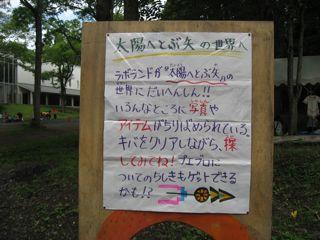 太陽へとぶ矢の世界へ
ラボランドが『太陽へとぶ矢』の
世界にだいへんしん!!
いろんなところに写真や
アイテムがちりばめられている。
キバをクリアしながら、探
してみてね! プエブロに
ついてのちしきもゲットできる
かも!?